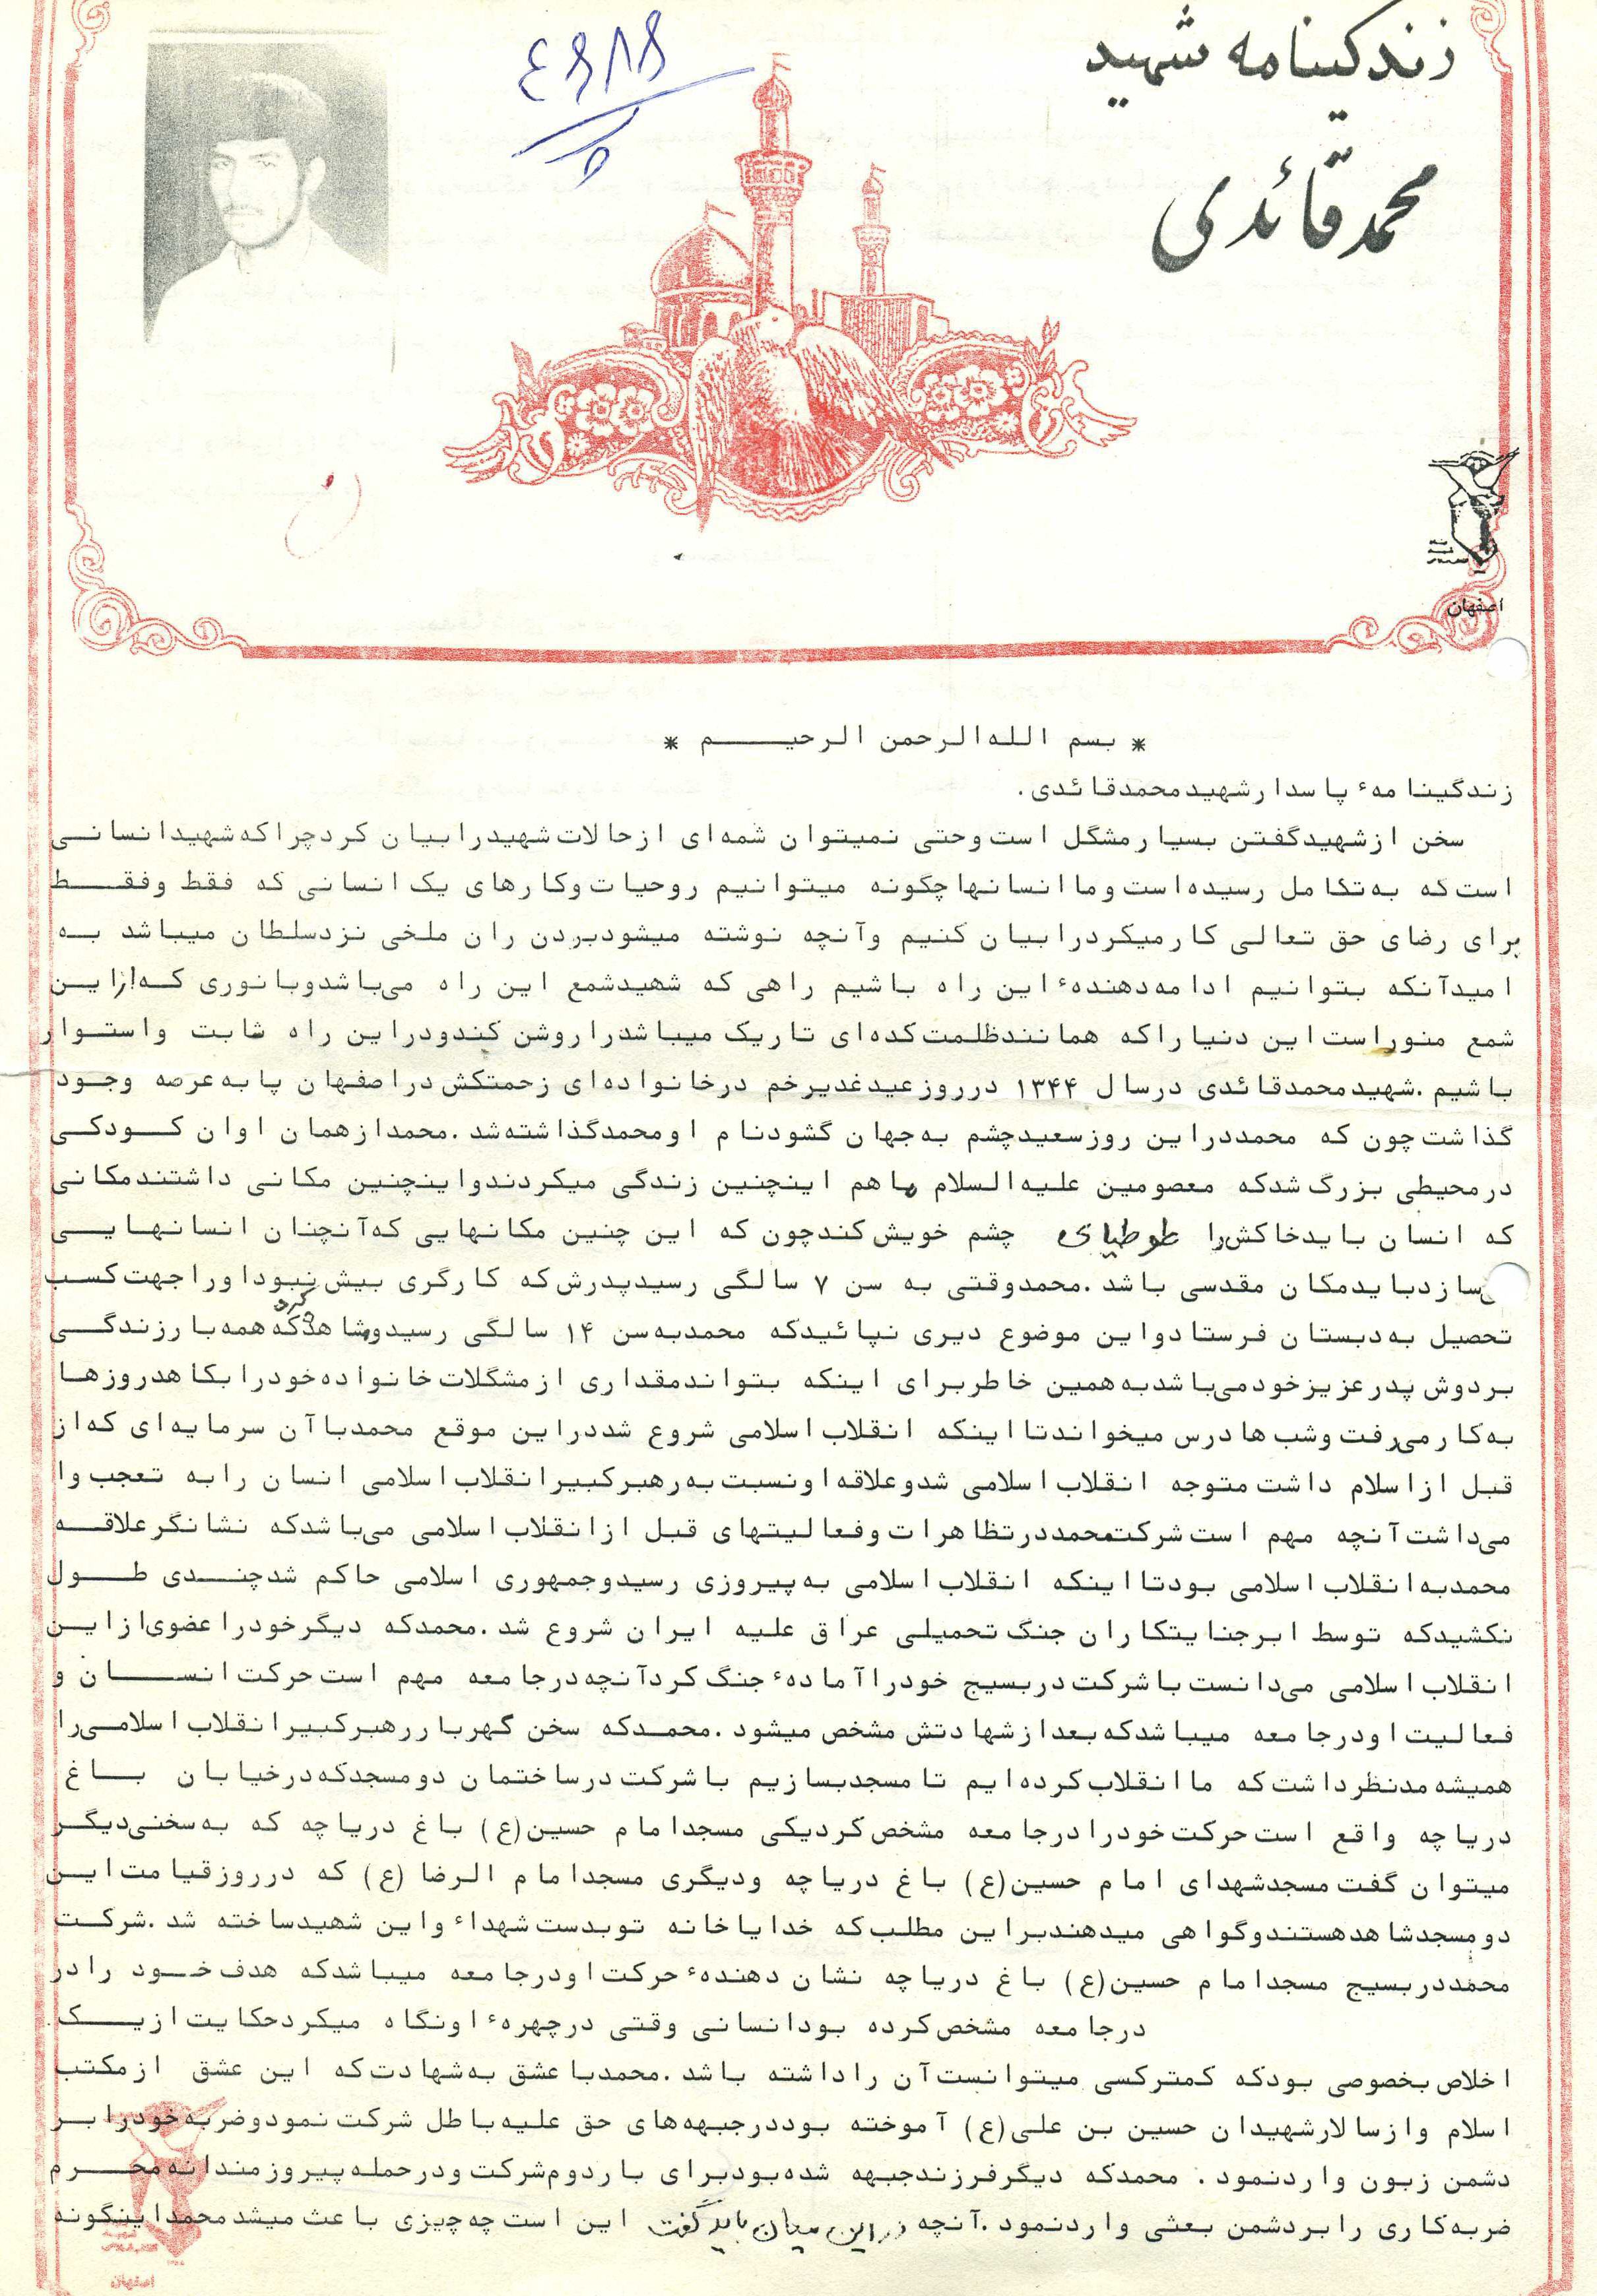 زندگینامه شهید
محمد قائدی
۴۶۸۸۶
اصفهان
* بسم الله الرحمن الرحیـــم *
زندگینامهٔ پاسدار شهید محمد قائدی .
سخن از شهید گفتن بسیار مشگل است وحتی نمیتوان شمه‌ای از حالات شهید را بیان کرد چرا که شهید انسانی
است که به تکامل رسیده است وما انسانها چگونه میتوانیم روحیات وکارهای یک انسانی که فقط وفقــط
برای رضای حق تعالی کار میکرد را بیان کنیم وآنچه نوشته میشود بردن ران ملخی نزد سلطان میباشد بــه
امید آنکه بتوانیم ادامه دهندهٔ این راه باشیم راهی که شهید شمع این راه می‌باشد وبا نوری کــه از ایــن
شمع منور است این دنیا را که همانند ظلمت کده‌ای تاریک میباشد را روشن کند ودر این راه ثابت واستــوار
باشیم .شهید محمد قائدی در سال ۱۳۴۴ در روز عید غدیر خم در خانواده‌ای زحمتکش در اصفهان پا به عرصه وجــود
گذاشت چون که محمد در این روز سعید چشم به جهان گشود نام او محمد گذاشته شد .محمد از همان اوان کــودکــی
در محیطی بزرگ شد که معصومین علیه السلام با هم اینچنین زندگی میکردند واینچنین مکانی داشتند مکانی
که انسان باید خاکش را طوطیای چشم خویش کند چون که این چنین مکانهایی که آنچنان انسانهایــی
سازد باید مکان مقدسی باشد .محمد وقتی به سن ۷ سالگی رسید پدرش که کارگری بیش نبود اورا جهت کسب
تحصیل به دبستان فرستاد واین موضوع دیری نپائید که محمد به سن ۱۴ سالگی رسید وشاهد کرد که همه بار زندگــی
بر دوش پدر عزیز خود می‌باشد به همین خاطر برای اینکه بتواند مقداری از مشگلات خانواده خود را بکاهد روزهــا
به کار می‌رفت وشب ها درس میخواند تا اینکه انقلاب اسلامی شروع شد در این موقع محمد با آن سرمایه‌ای که از
قبل از اسلام داشت متوجه انقلاب اسلامی شد وعلاقه او نسبت به رهبر کبیر انقلاب اسلامی انسان را به تعجب وا
می‌داشت آنچه مهم است شرکت محمد در تظاهرات وفعالیتهای قبل از انقلاب اسلامی می‌باشد که نشانگر علاقــه
محمد به انقلاب اسلامی بود تا اینکه انقلاب اسلامی به پیروزی رسید وجمهوری اسلامی حاکم شد چنــدی طــول
نکشید که توسط ابرجنایتکاران جنگ تحمیلی عراق علیه ایران شروع شد .محمد که دیگر خود را عضوی از ایــن
انقلاب اسلامی می‌دانست با شرکت در بسیج خود را آمادهٔ جنگ کرد آنچه در جامعه مهم است حرکت انســـان و
فعالیت او در جامعه میباشد که بعد از شهادتش مشخص میشود .محمــد که سخن گهربار رهبر کبیر انقلاب اسلامــی را
همیشه مدنظر داشت که ما انقلاب کرده ایم تا مسجد بسازیم با شرکت در ساختمان دو مسجد که در خیابان بــاغ
دریاچه واقع است حرکت خود را در جامعه مشخص کرد یکی مسجد امام حسین(ع) باغ دریاچه که به سخنی دیگــر
میتوان گفت مسجد شهدای امام حسین(ع) باغ دریاچه ودیگری مسجد امام الرضا (ع) که در روز قیامت ایــن
دو مسجد شاهد هستند وگواهی میدهند بر این مطلب که خدایا خانه تو بدست شهداء واین شهید ساخته شد .شرکــت
محمد در بسیج مسجد امام حسین(ع) باغ دریاچه نشان دهندهٔ حرکت او در جامعه میباشد که هدف خــود را در
در جامعه مشخص کرده بود انسانی وقتی در چهرهٔ او نگاه میکرد حکایت از یــک
اخلاص بخصوصی بود که کمتر کسی میتوانست آن را داشته باشد .محمد با عشق به شهادت که این عشق از مکتب
اسلام واز سالار شهیدان حسین بن علی(ع) آموخته بود در جبهه‌های حق علیه باطل شرکت نمود وضربه خود را بــر
دشمن زبون وارد نمود . محمد که دیگر فرزند جبهه شده بود برای بار دوم شرکت ودر حمله پیروزمندانه محــرم
ضربه کاری را بر دشمن بعثی وارد نمود .آنچه در این میان باید گفت این است چه چیزی باعث میشد محمد اینگونه
اصفهان